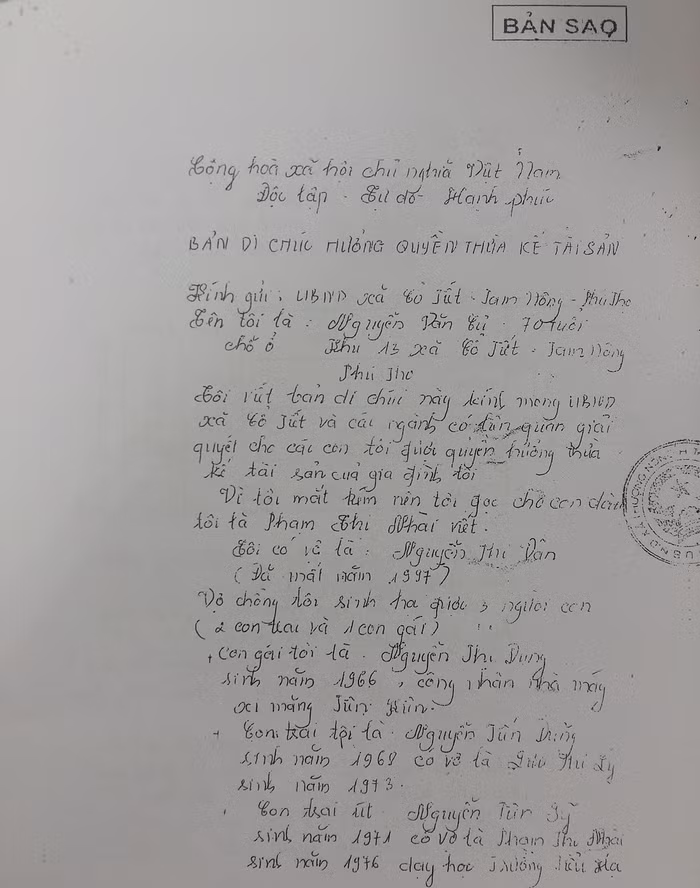 BẢN SAO
Cộng hoà xã hội chủ nghĩa Việt Nam
Độc lập - Tự do - Hạnh phúc
BẢN DI CHÚC HƯỞNG QUYỀN THỪA KẾ TÀI SẢN
Kính gửi: UBND xã Cổ Tiết - Tam Nông - Phú Thọ
Tên tôi là: Nguyễn Văn 70 tuổi
chỗ ở Khu 13 xã Cổ Tiết - Tam Nông
Phú Thọ
Tôi viết bản di chúc này kính mong UBND
xã Cổ Tiết và các ngành có liên quan giải
quyết cho các con tôi được quyền hưởng thừa
kế tài sản của gia đình tôi
Vì tôi mắt kém nên tôi đọc cho con dâu
tôi là Phạm Thị Nhài viết.
Tôi có vợ là: Nguyễn Thị Vân
(Đã mất năm 1997)
Vợ chồng tôi sinh ra được 3 người con
(2 con trai và 1 con gái)
+ Con gái tôi là. Nguyễn Thị Dung
sinh năm 1966, công nhân nhà máy
xi măng
+ Con trai tôi là. Nguyễn Tiến
sinh năm 1968 có vợ là Lưu Thị Ly
sinh năm 1973.
Con trai út Nguyễn
sinh năm 1971 có vợ là Phạm Thị Nhài
sinh năm 1976 dạy học Trường